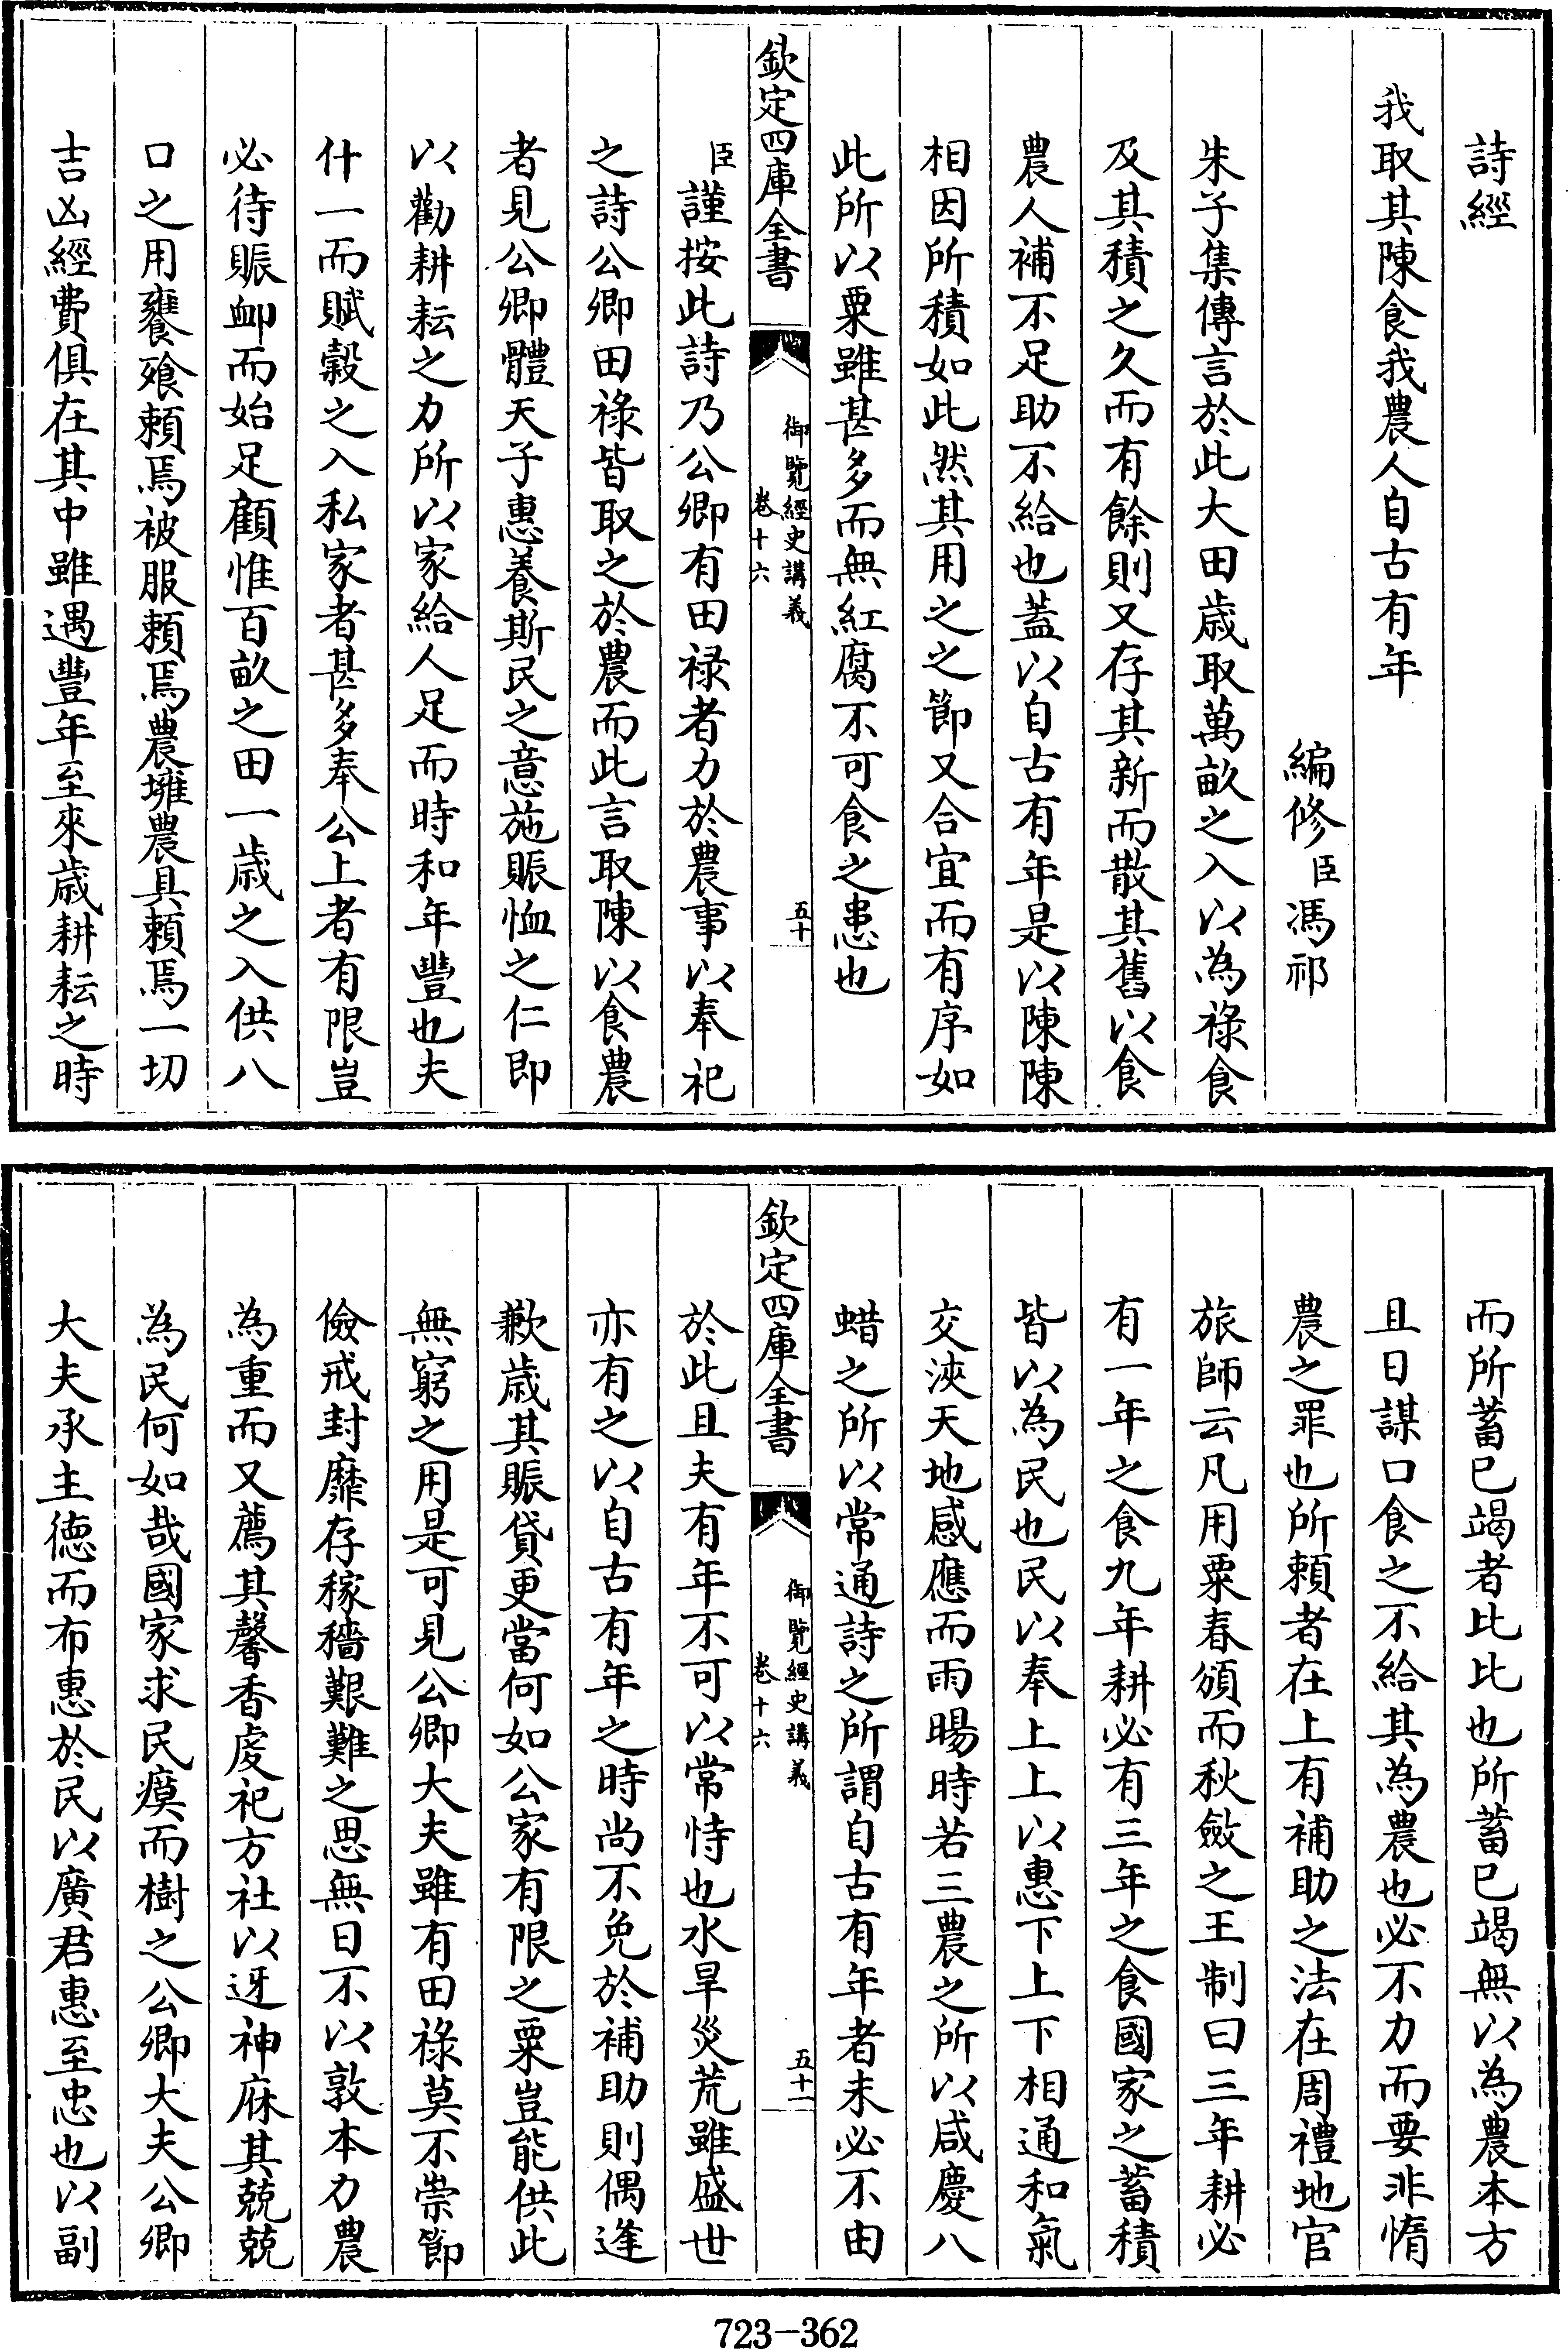 詩經
我取其陳食我農人自古有年
編修臣馮祁
朱子集傳言於此大田歲取萬畝之入以為祿食
及其積之久而有餘則又存其新而散其舊以食
農人補不足助不給也蓋以自古有年是以陳陳
相因所積如此然其用之之節又合宜而有序如
此所以粟雖甚多而無紅腐不可食之患也
欽定四庫全書
御覽經史講義
卷十六
五十
臣謹按此詩乃公卿有田祿者力於農事以奉祀
之詩公卿田祿皆取之於農而此言取陳以食農
者見公卿體天子惠養斯民之意施賑恤之仁即
以勸耕耘之力所以家給人足而時和年豐也夫
什一而賦穀之入私家者甚多奉公上者有限豈
必待賑卹而始足顧惟百畝之田一歲之入供八
口之用饔飱賴焉被服賴焉農壅農具賴焉一切
吉凶經費俱在其中雖遇豐年至來歲耕耘之時
而所蓄已竭者比比也所蓄已竭無以為農本方
且日謀口食之不給其為農也必不力而要非惰
農之罪也所賴者在上有補助之法在周禮地官
旅師云凡用粟春頒而秋斂之王制曰三年耕必
有一年之食九年耕必有三年之食國家之蓄積
皆以為民也民以奉上上以惠下上下相通和氣
交浹天地感應而雨暘時若三農之所以咸慶八
蜡之所以常通詩之所謂自古有年者未必不由
欽定四庫全書
御覽經史講義
卷十六
五十一
於此且夫有年不可以常恃也水旱災荒雖盛世
亦有之以自古有年之時尚不免於補助則偶逢
歉歲其賑貸更當何如公家有限之粟豈能供此
無窮之用是可見公卿大夫雖有田祿莫不崇節
儉戒封靡存稼穡艱難之思無日不以敦本力農
為重而又薦其馨香虔祀方社以迓神庥其兢兢
為民何如哉國家求民瘼而樹之公卿大夫公卿
大夫承主德而布惠於民以廣君惠至忠也以副
723-362